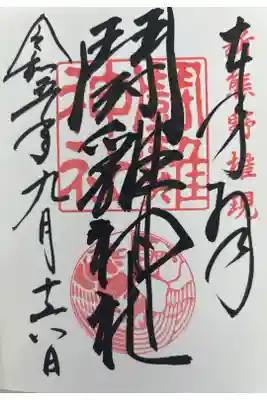 新熊野権現
奉拝
鬪雞神社
鬪雞
神社
令和五年九月十六日